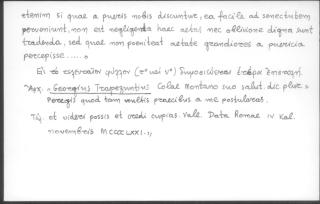 etenim si quae a pueris nobis discuntur, ea facile ad senectutem
perveniunt, non est negligenda haec aetas nec oblivione digna sunt
tradenda, sed quae non poeniteat aetate grandiores a puericia
percepisse......»
Εἰς τὸ ἐσχατον φύλλον (rº καὶ vº)
Ἀρχ. «Georgius Trapezuntius Colae Montano suo salut. dic plur.»
Peregis quod tam multis praecibus a me postulabas.
Τέλ. et videri possis et credi cupias. Vale. Data Romae IV Kal.
novembris MCCCCLXXI.,,